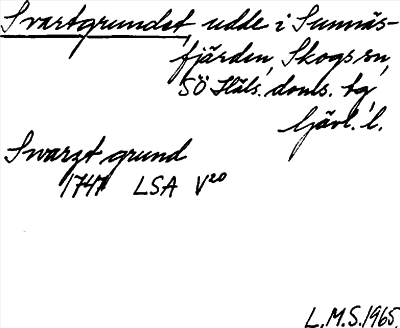 Svartgrundet, udde i Sunnäs-
fjärden, Skogs sn,
SÖ Häls. doms. tg,
Gävl. l.
Swarzt grund
1747 LSA V20
L.M.S. 1965.